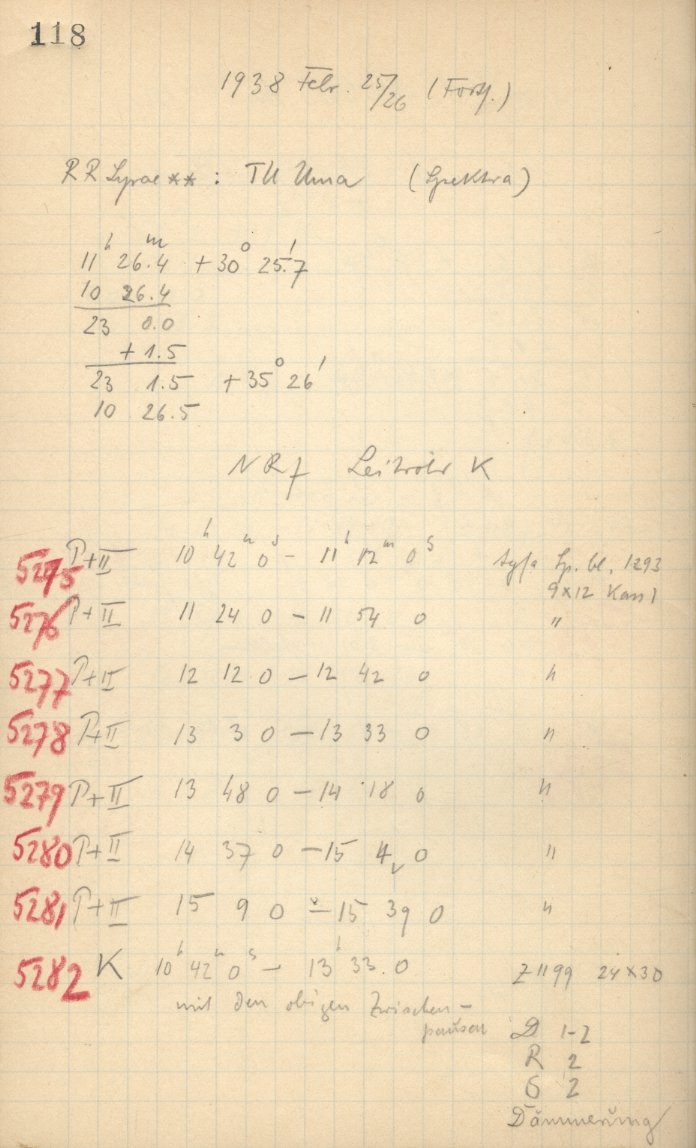 118
1938 Febr. 25/26 (Forts.)
RR Lyrae ** : TU Uma (Spektra)
11h 26m.4 +30° 25'.7
10 26.4
23 0.0
+ 1.5
23 1.5 +35° 26'
10 26.5
Leitrohr K
5275 P+II 10h 42m 0s – 11h 12m 0s Agfa Sp. bl. 1293
9×12
5276 P+II 11 24 0 – 11 54 0 "
5277 P+II 12 12 0 – 12 42 0 "
5278 P+II 13 3 0 – 13 33 0 "
5279 P+II 13 48 0 – 14 18 0 "
5280 P+II 14 37 0 – 15 4 0 "
5281 P+II 15 9 0 – 15 39 0 "
5282 K 10h 42m 0s – 13h 33.0 Z 1199 24×30
mit den obigen Zwischen-
pausen
D 1-2
R 2
G 2
Dämmerung